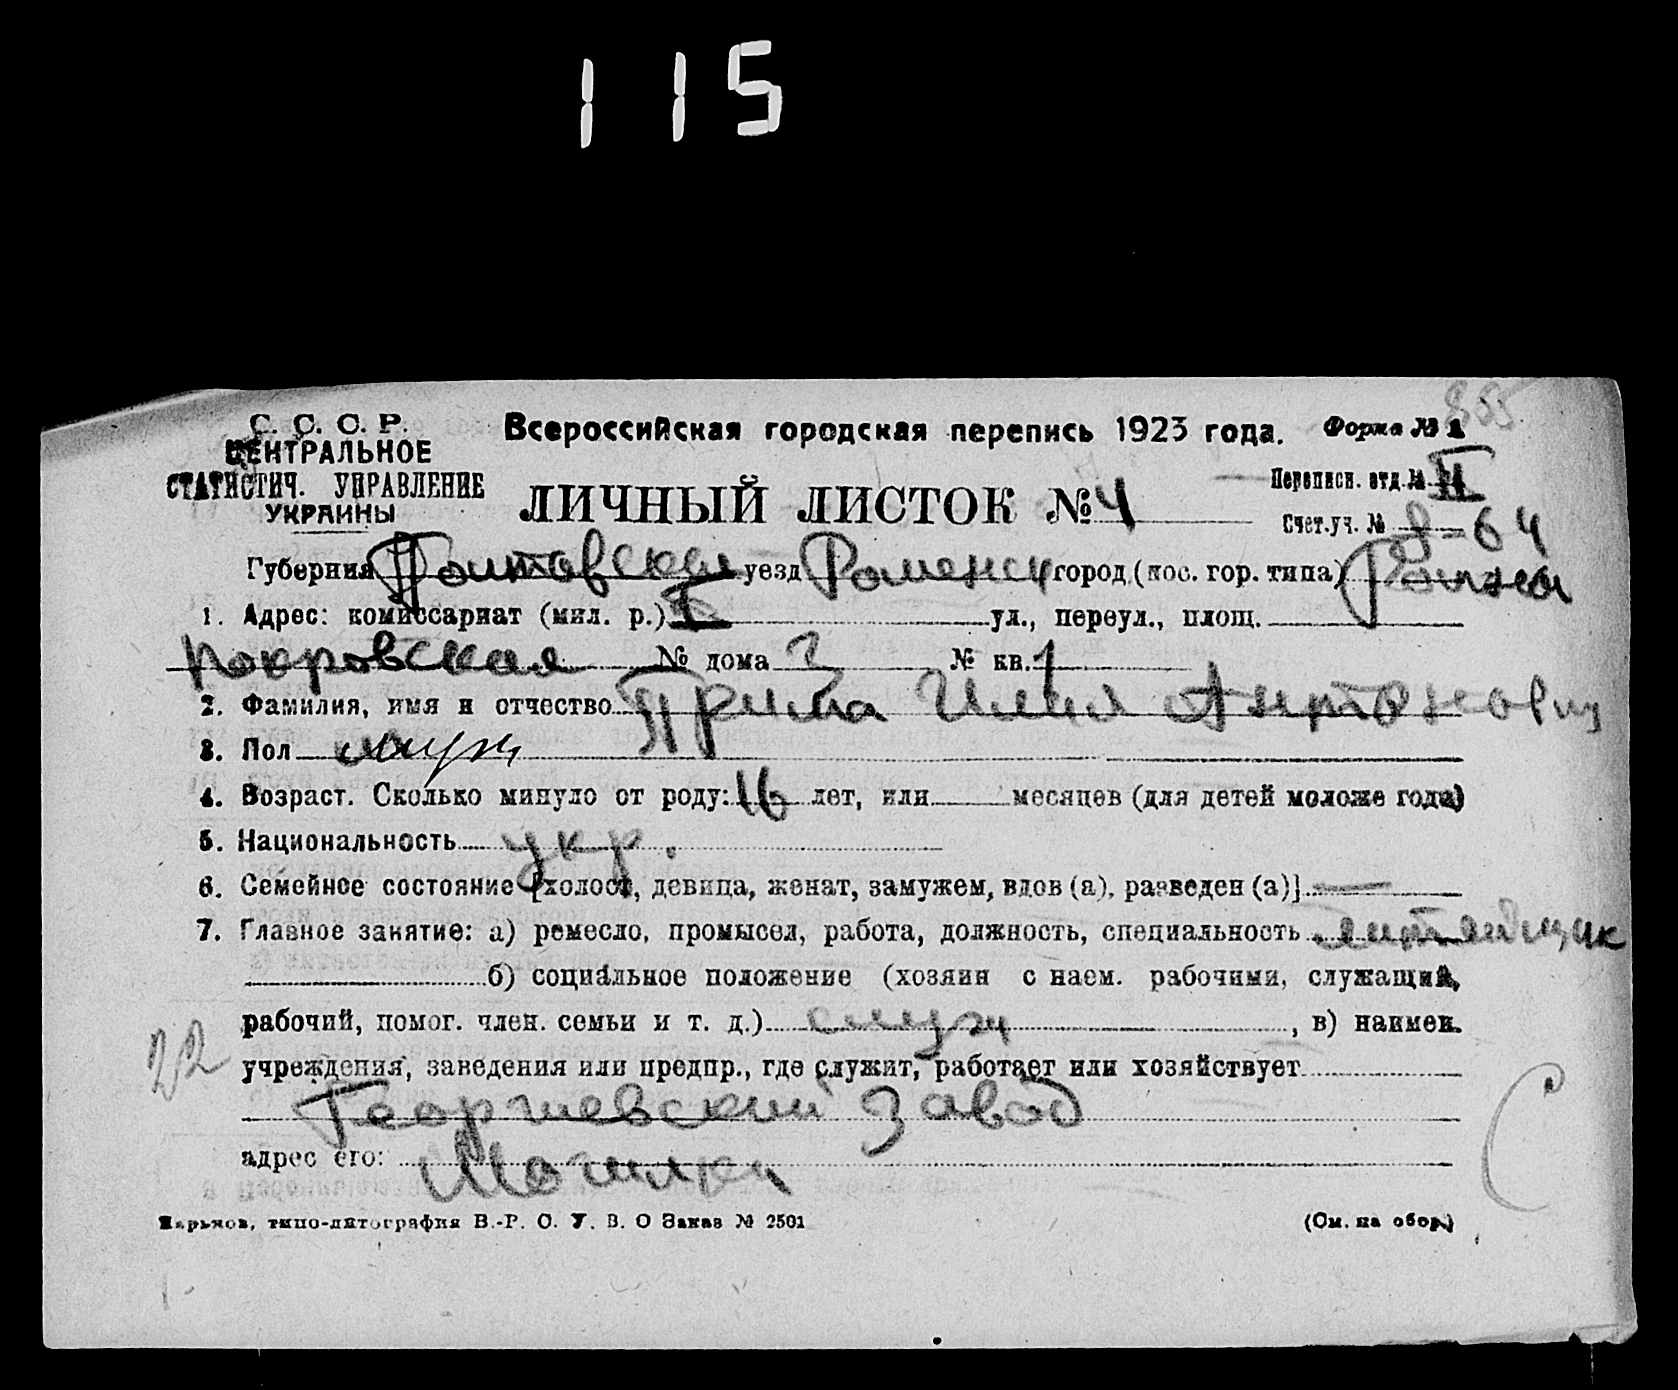 115
855
С. С. С. Р.
ЦЕНТРАЛЬНОЕ
СТАТИСТИЧ. УПРАВЛЕНИЕ
УКРАИНЫ
Всероссийская городская перепись 1923 года.
Форма № 1
ЛИЧНЫЙ ЛИСТОК № 4
Переписн. отд. № II
Счет. уч. № 8-64
Губерния Полтавская уезд Роменск город (пос. гор. типа) Ромны
1. Адрес: комиссариат (мил. р.) I ул., переул., площ.
Покровская № дома 3 № кв. 1
2. Фамилия, имя и отчество Прийма Илья Антонович
3. Пол муж
4. Возраст. Сколько минуло от роду: 16 лет, или месяцев (для детей моложе года)
5. Национальность укр.
6. Семейное состояние [холост, девица, женат, замужем, вдов (а), разведен (а)] —
7. Главное занятие: а) ремесло, промысел, работа, должность, специальность
б) социальное положение (хозяин с наем. рабочими, служащий,
рабочий, помог. член. семьи и т. д.) служ , в) наимен.
22
учреждения, заведения или предпр., где служит, работает или хозяйствует
Георгиевский завод
адрес его:
С
Харьков, типо-литография В.-Р. О. У. В. О Заказ № 2501
(См. на обор.)